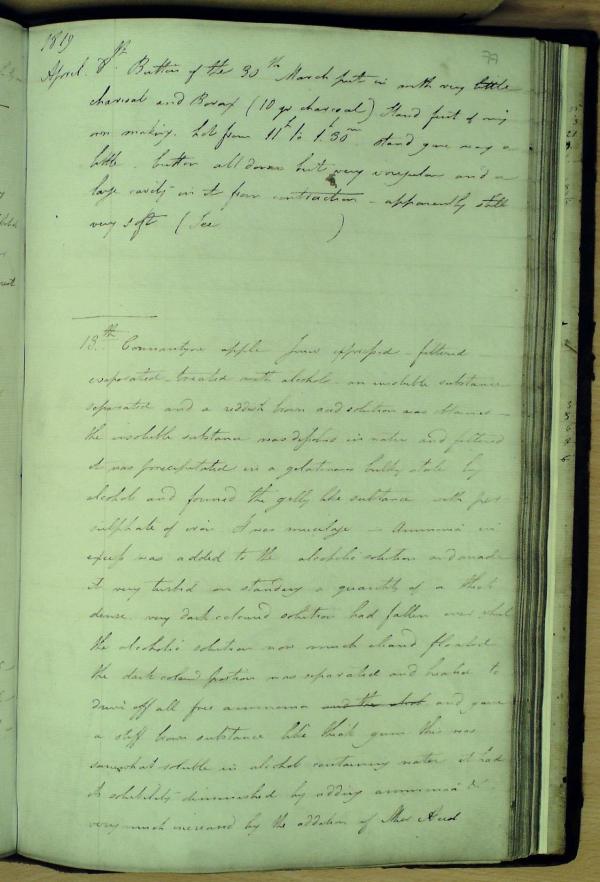 1819
77
April. 8th. Button of the 30th March put in with very little
charcoal and Borax (10 gr charcoal) Stand first of my
own making. hot from 11h to 1h.30m. Stand gave way a
little. button all down but very irregular and a
large cavity in it from contraction - apparently still
very soft (See )
13th. apple juice expressed - filtered
evaporated treated with alcohol - an insoluble substance
separated and a reddish brown acid solution was obtained -
the insoluble substance was dissolved in water and filtered
it was precipitated in a gelatinous bulky state by
alcohol and formed the gelly like substance with per
sulphate of iron. It was mucilage - Ammonia in
excess was added to the alcoholic solution and made
it very turbid on standing a quantity of a thick
dense very dark coloured solution had fallen over which
the alcoholic solution now much cleared floated
the dark colored portion was separated and heated to
drive off all free ammonia and the alcoh and gave
a stiff brown substance like thick gum this was
somewhat soluble in alcohol containing water it had
its solubility diminished by adding ammonia &
very much increased by the addition of Acid